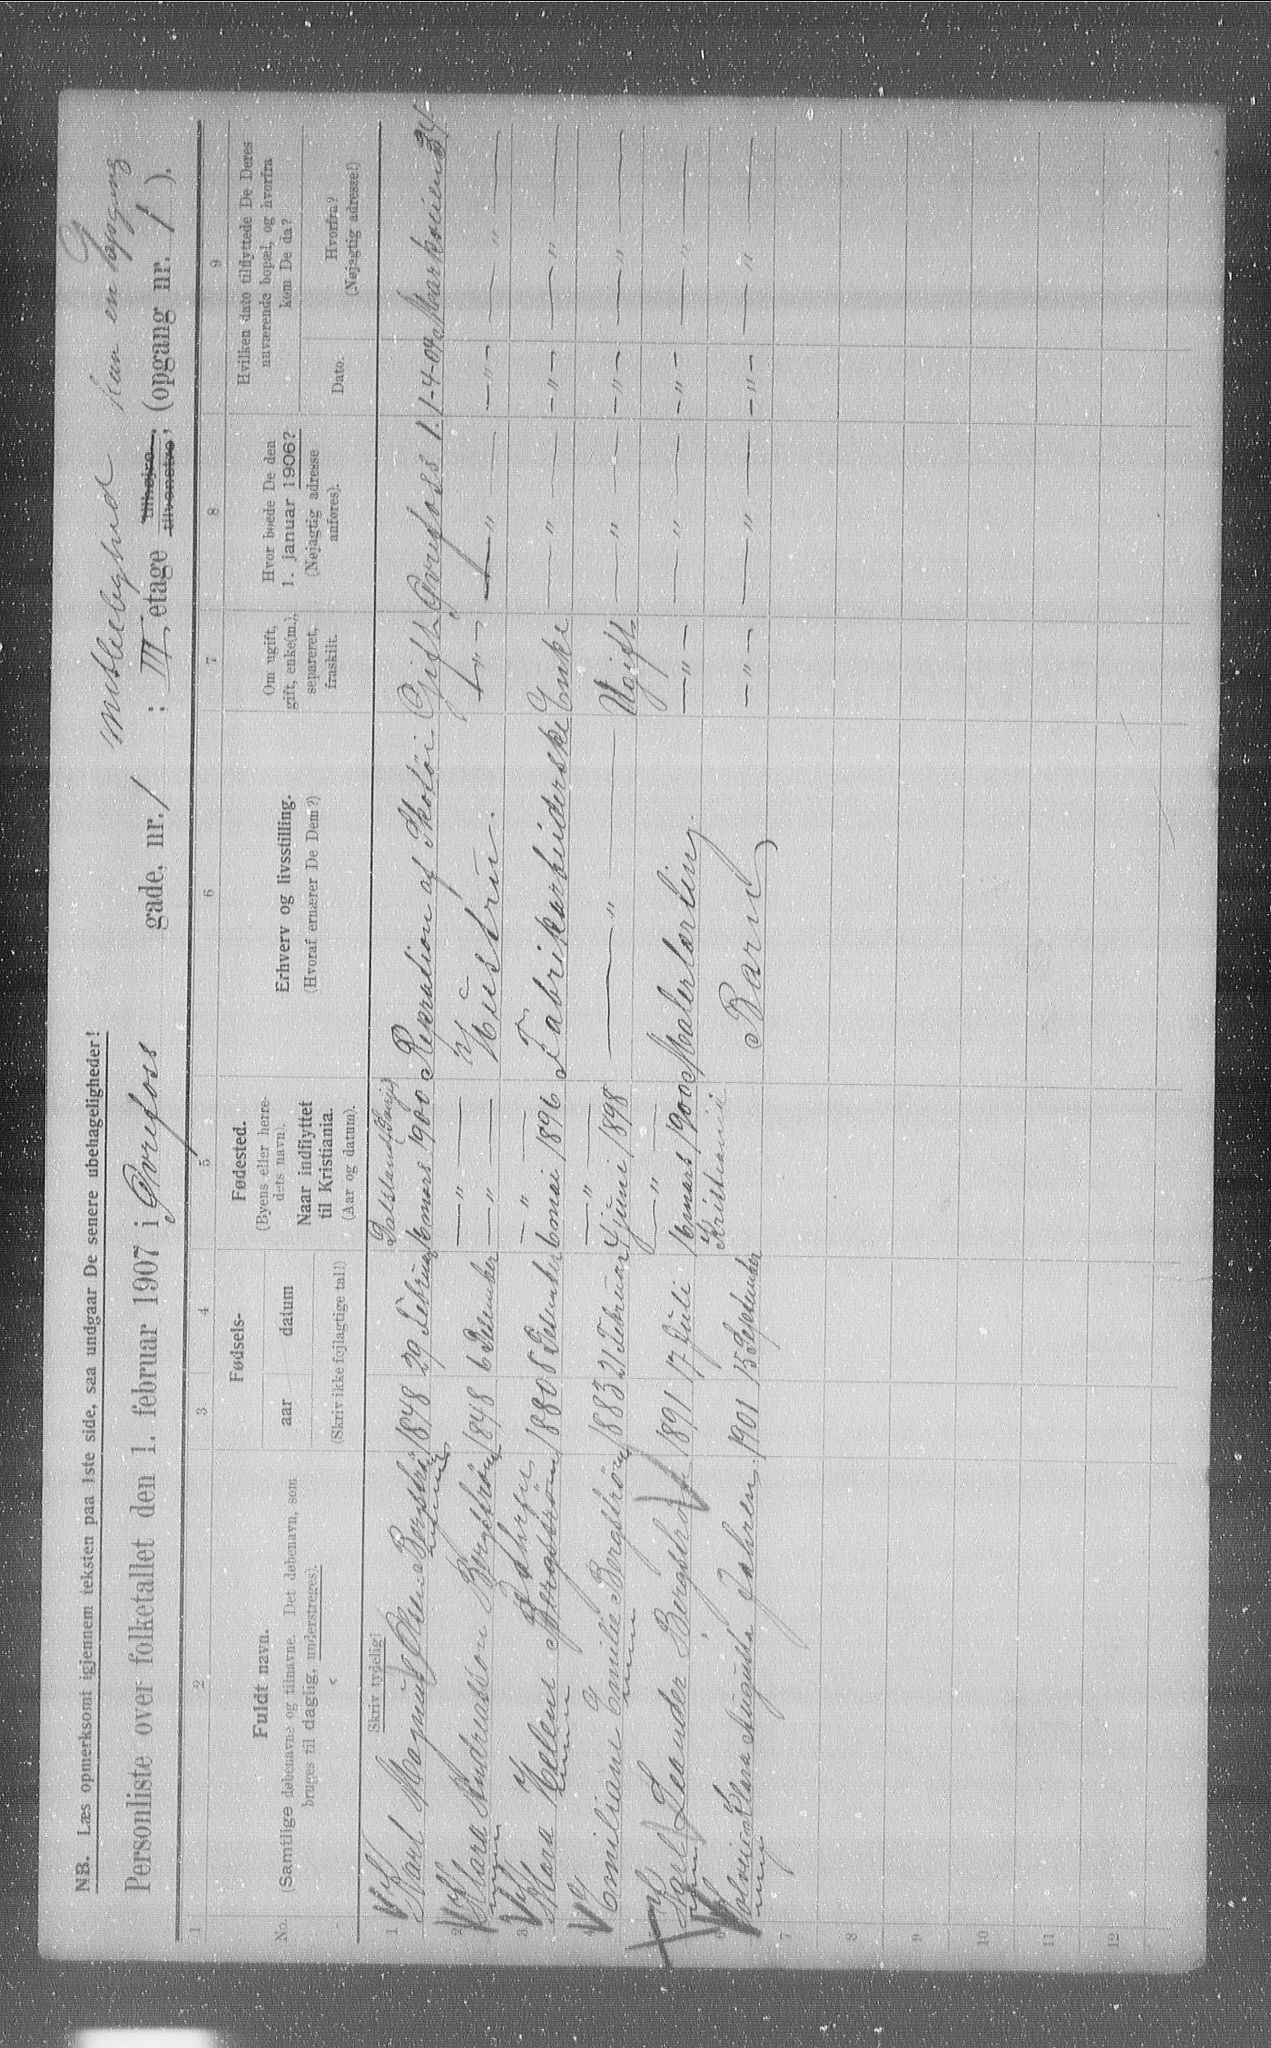 NB. Læs opmerksomt igjennem teksten paa 1ste side, saa undgaar De senere ubehageligheder!
kun en opgang
Personliste over folketallet den 1. februar 1907 i Gvrefoss gade, nr. 1 ; III etage tilhøjre, tilvenstre, (opgang nr. 1 ).
1 2 3 4 5 6 7 8 9
No.
Fuldt navn.
(Samtlige døbenavne og tilnavne. Det døbenavn, som
bruges til daglig, understreges).
Fødsels-
aar datum
(Skriv ikke fejlagtige tal!)
Fødested.
(Byens eller herre-
dets navn).
Naar indflyttet
til Kristiania.
(Aar og datum).
Erhverv og livsstilling.
(Hvoraf ernærer De Dem?)
Om ugift,
gift, enke(m.),
separeret,
fraskilt.
Hvor boede De den
1. januar 1906?
(Nøjagtig adresse
anføres).
Hvilken dato tilflyttede De Deres
nuværende bopæl, og hvorfra
kom De da?
Dato.
Hvorfra?
(Nøjagtig adresse!)
Skriv tydelig!
1 Karl Magnus Olsen Bergström 1848 29 Februar 16 mars 1900 af Skotöi Gift Gvrefoss 1. 1-4-04 Markveien 34
2 Klara Andreasson Bergström 1848 6 Desember — " — Hustru. — " — — " — — " — — " —
3 Klara Helene Bergström Jahren 1880 8 Desember — " — 6 mai 1896 Fabrikarbeiderske Enke — " — — " — — " —
4 Emiliane Emilie Bergström 1883 21 Februar — " — 4 juni 1898 — " — Ugift — " — — " — — " —
5 Karl Leander Bergström 1891 17 Juli — " — 16 mars 1900 Malerlærling. — " — — " — — " — — " —
6 Solveig Klara Augusta Jahren. 1901 15 September Kristiania Barn — " — — " — — " — — " —
7
8
9
10
11
12